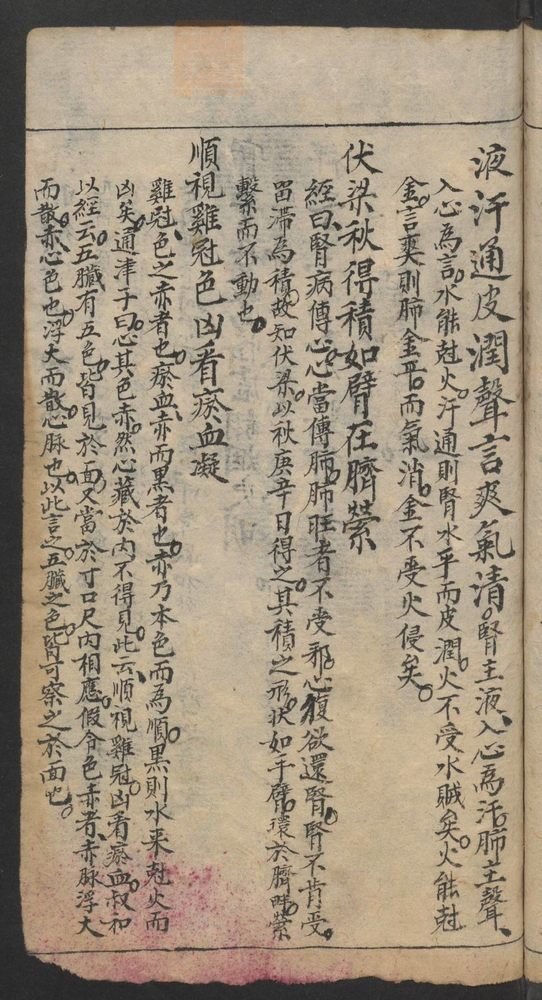 液汗通皮潤聲言爽氣清腎主液入心為汗肺主聲
入心為言水能尅火汗通則腎水平而皮潤火不受水賊矣火能尅
金言爽則肺金平而氣消金不受火侵矣
伏梁秋得積如臂在臍縈
經曰腎病傳心心當傳肺肺旺者不受邪心復欲還腎腎不肯受
畱滯為積故知伏梁以秋庚辛日得之其積之形狀如手臂環於臍畔縈
繫而不動也
順視雞冠色凶看瘀血凝
雞冠色之赤者也瘀血赤而黑者也赤乃本色而為順黑則水来尅火而
凶矣通津子曰心其色赤然心藏於内不得見此云順視雞冠凶看瘀血叔和
以經云五臟有五色皆見於面又當於寸口尺内相應假令色赤者赤脉浮大
而散赤心色也浮大而散心脉也以此言之五臟之色皆可察之於面也